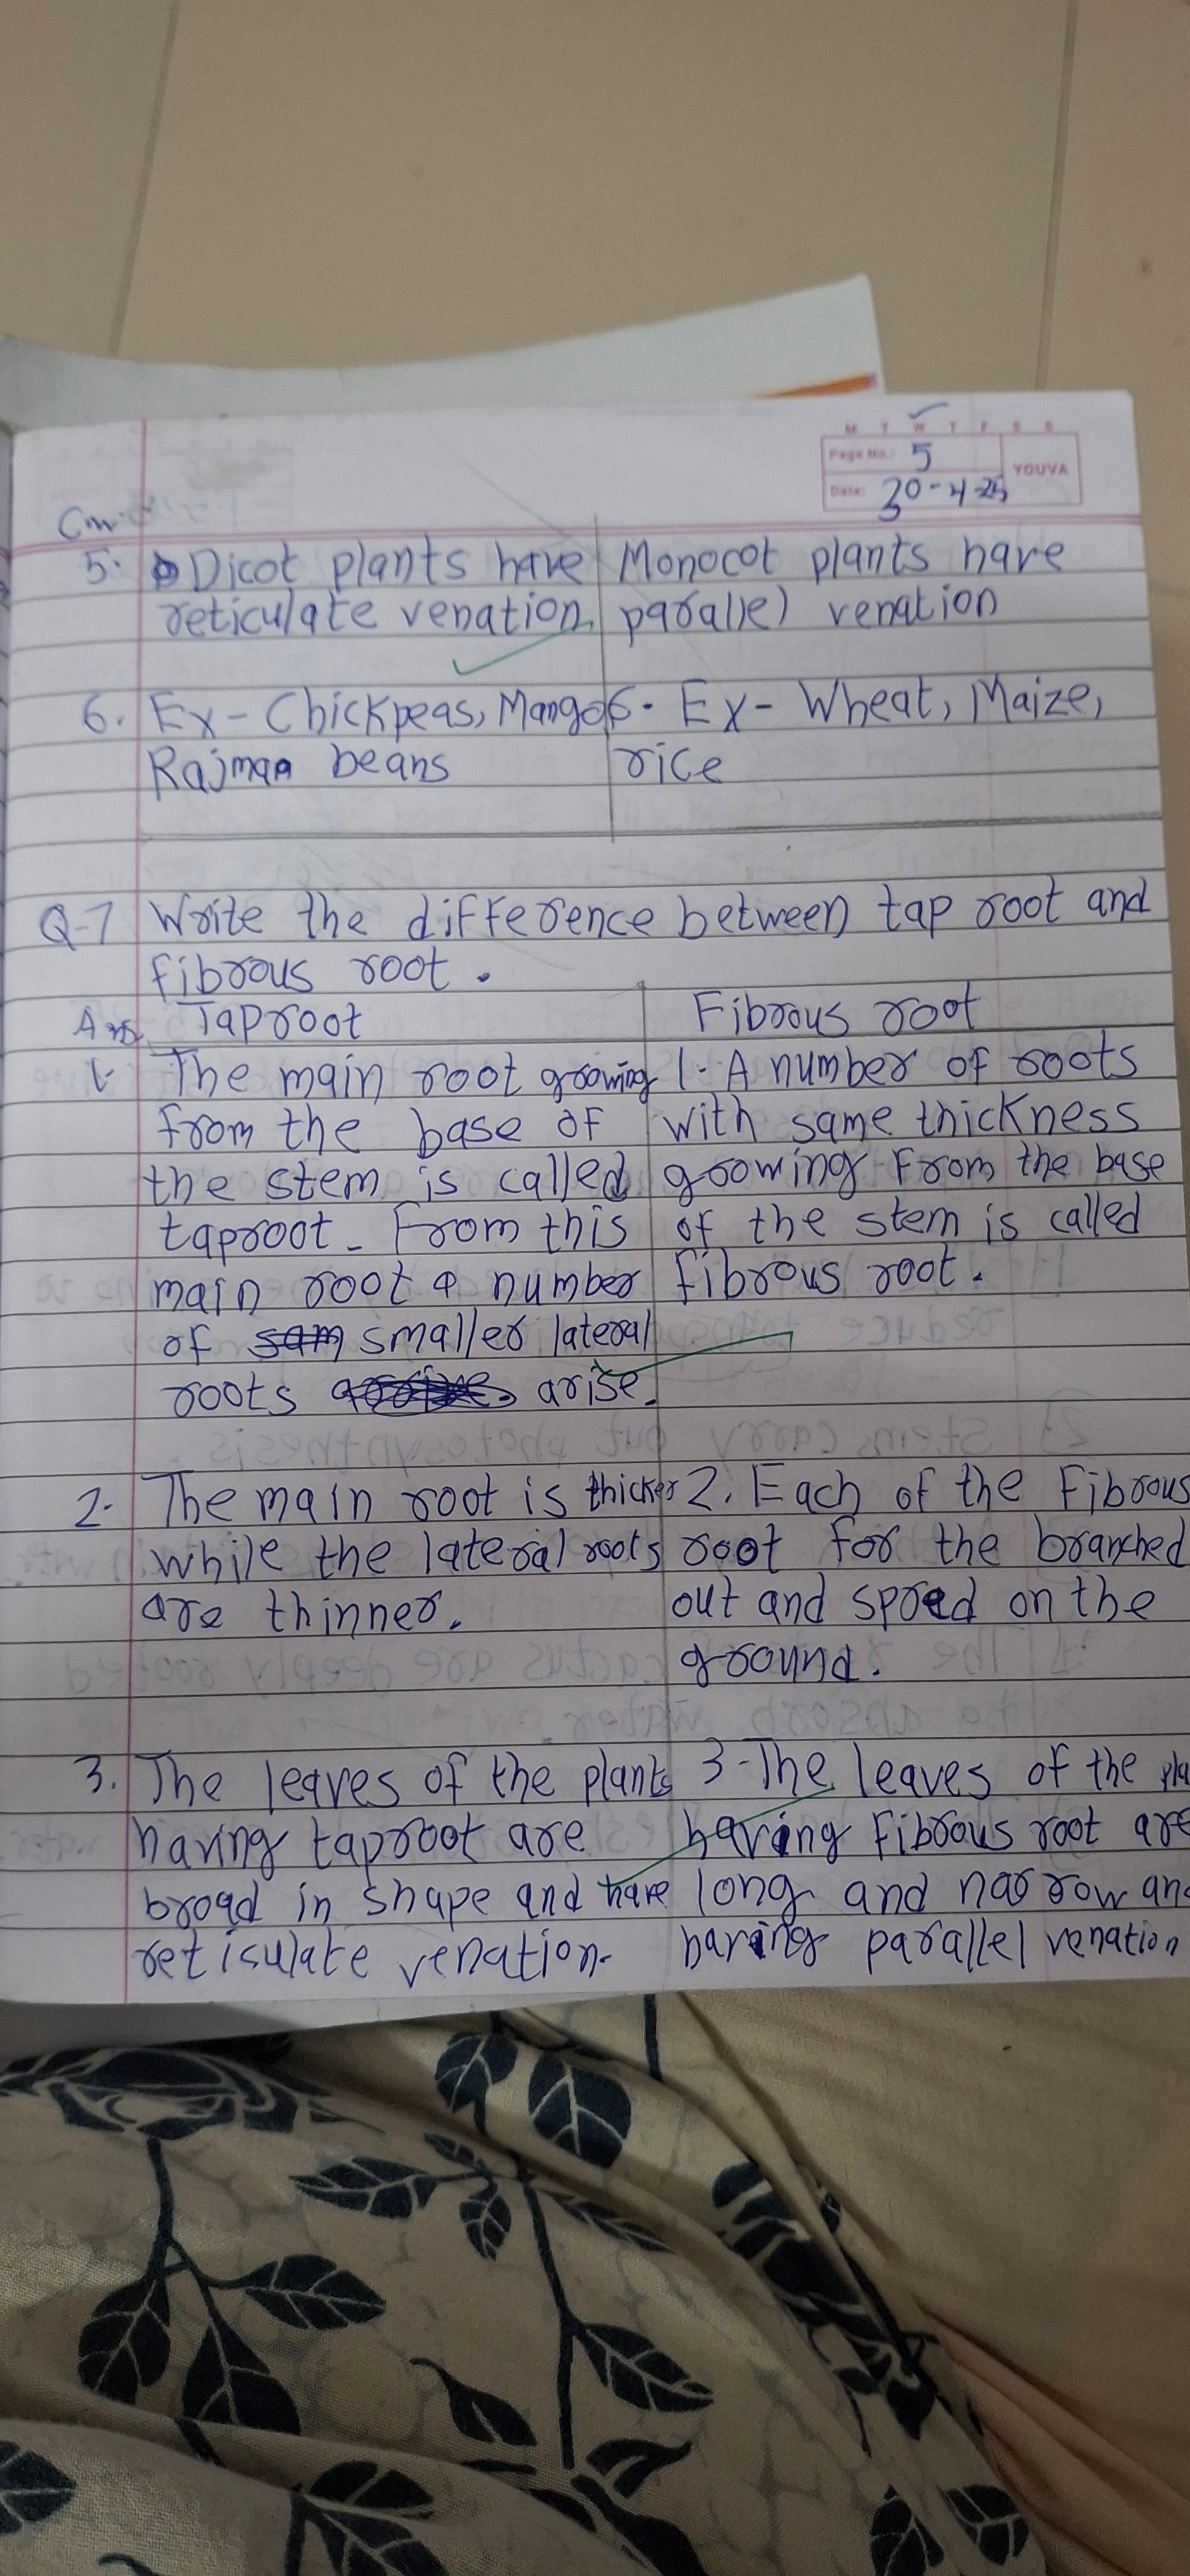 M T W T F S S
Page No.: 5
YOUVA
Date: 30-4-25
Cw
5. Dicot plants have | Monocot plants have
reticulate venation. | parallel venation
6. Ex - Chickpeas, Mango | 6. Ex - Wheat, Maize,
Rajmaa beans | rice
Q-7 Write the difference between tap root and
fibrous root.
Ans Taproot | Fibrous root
1. The main root growing | 1. A number of roots
from the base of | with same thickness
the stem is called | growing from the base
taproot. From this | of the stem is called
main root a number | fibrous root.
of smaller lateral
roots arise.
2. The main root is thicker | 2. Each of the Fibrous
while the lateral roots | root for the branched
are thinner. | out and spred on the
ground.
3. The leaves of the plants | 3-The leaves of the pla
having taproot are | having Fibrous root are
broad in shape and have | long and narrow and
retisulate venation. | having parallel venation